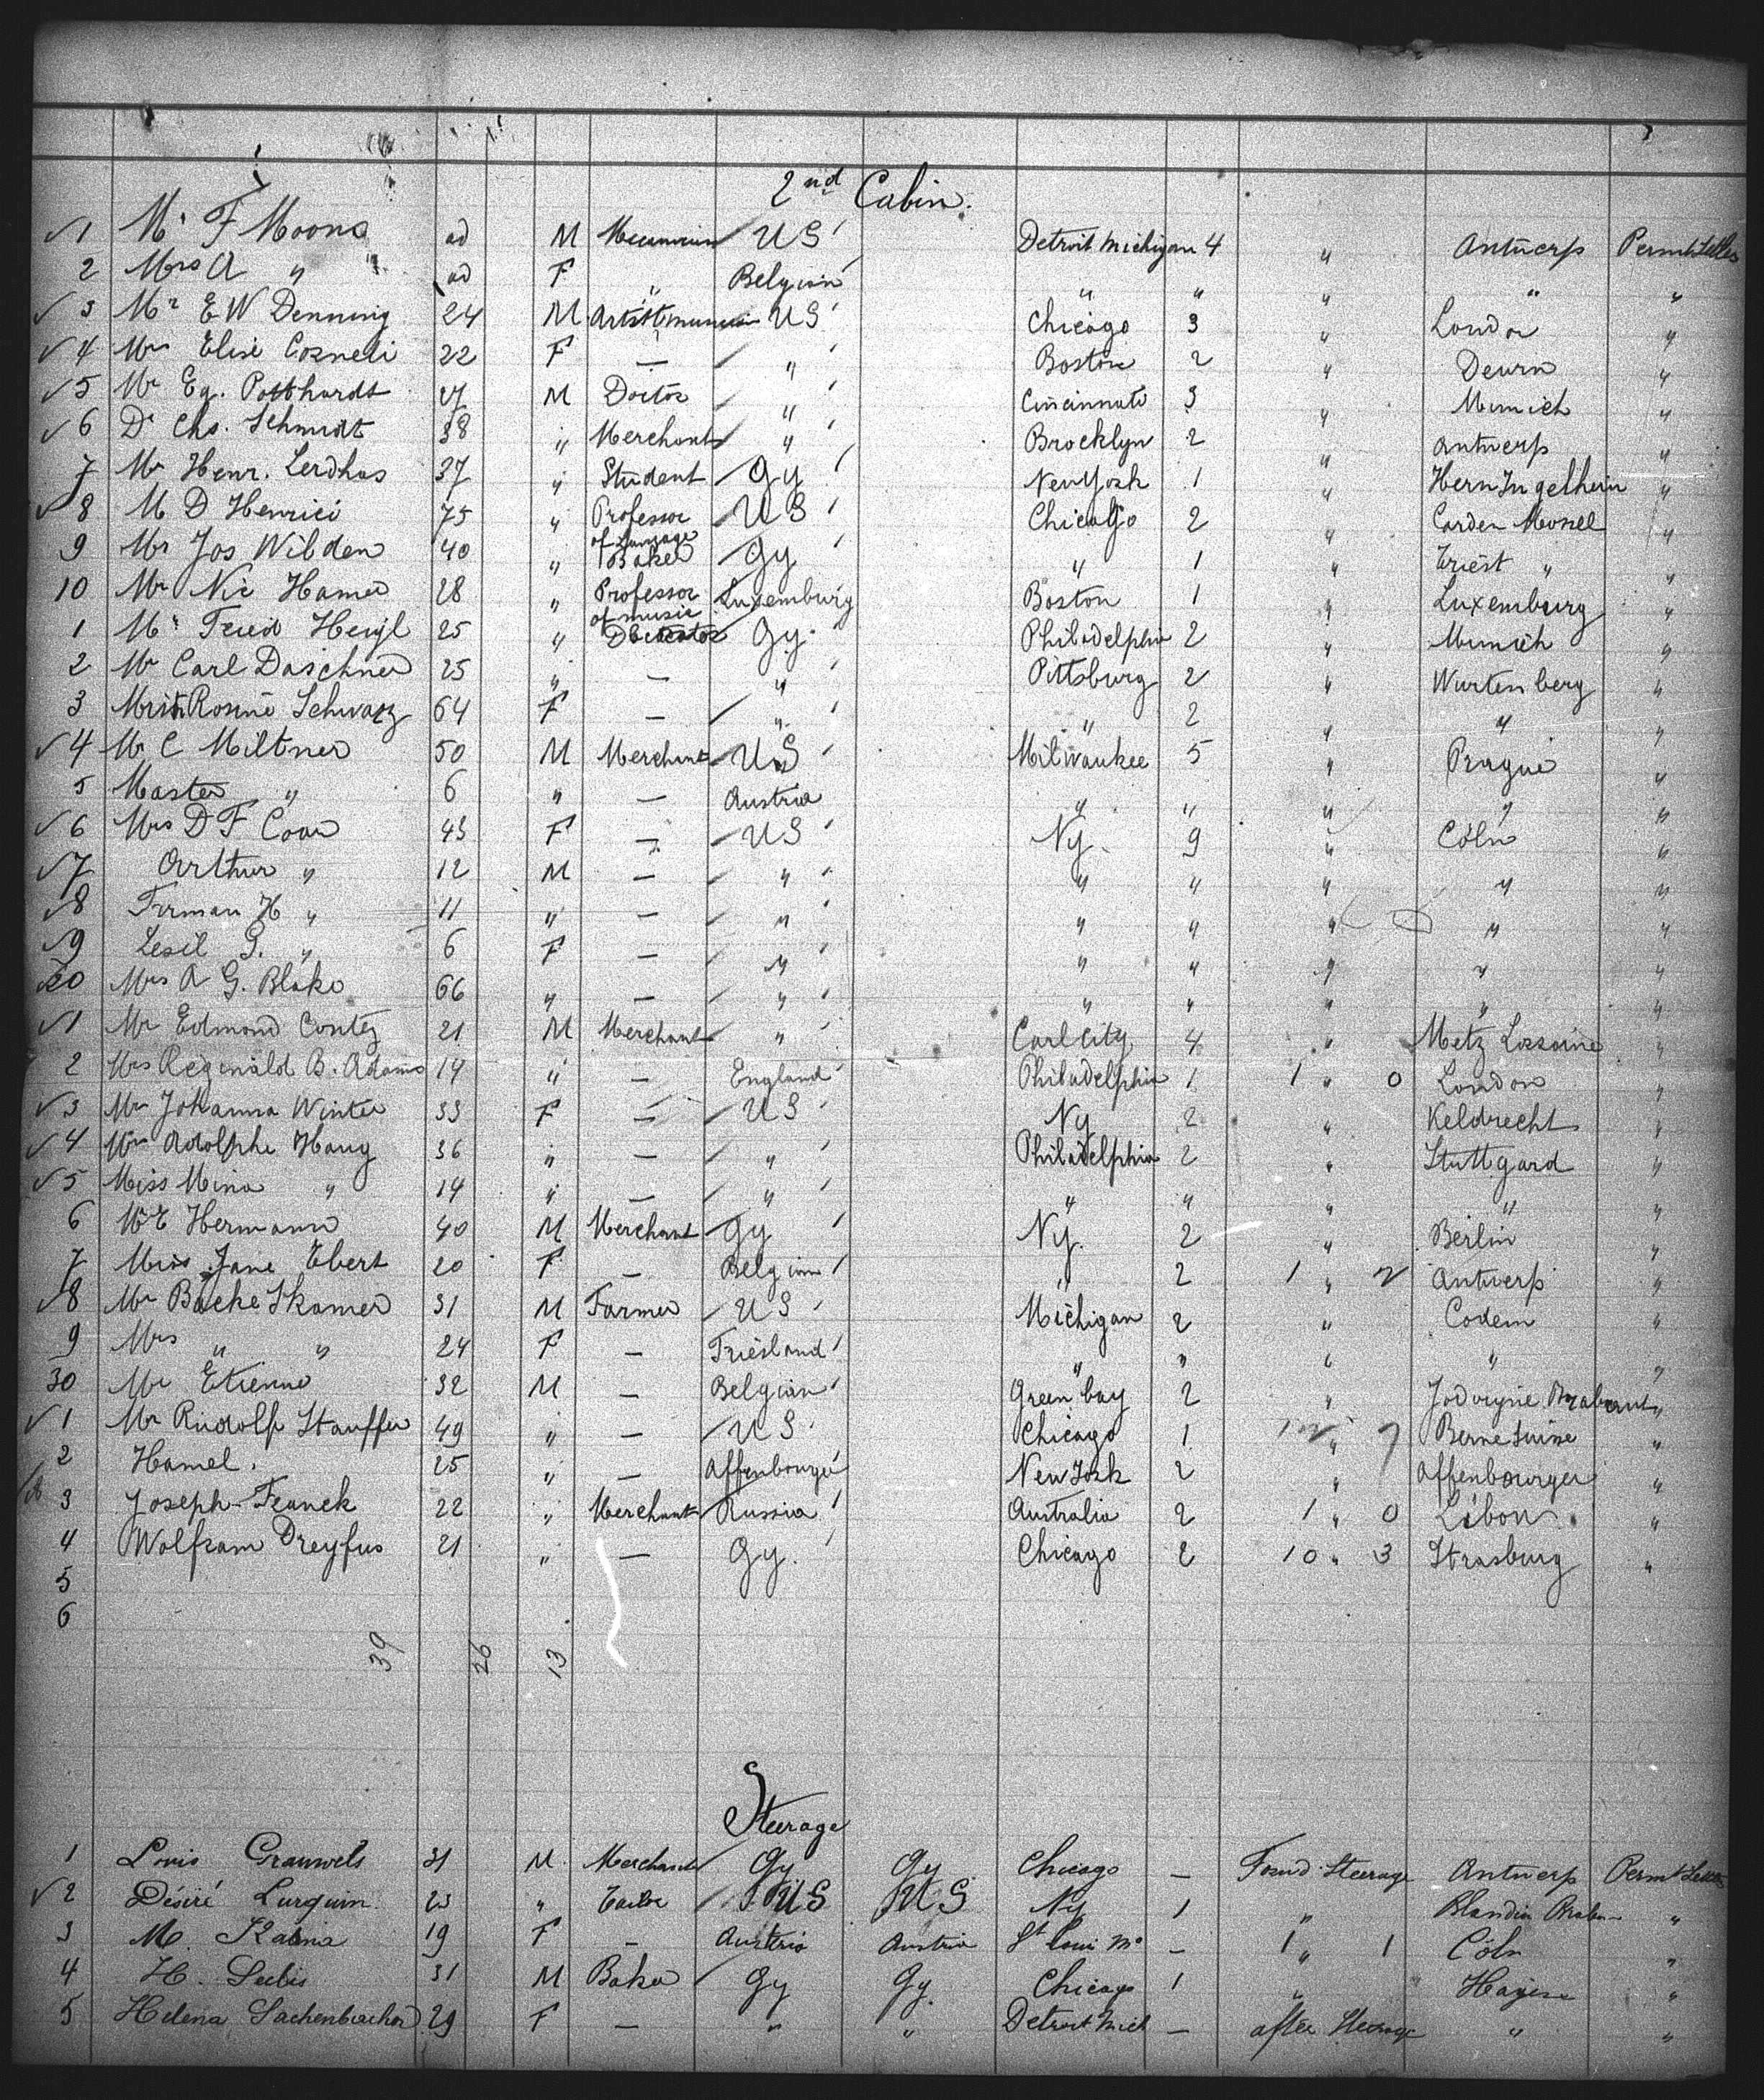 2nd Cabin.
1 Mr F Moons ad M US Detroit Michigan 4 " Antwerp Permt Settler
2 Mrs A " ad F " Belgian " " " " "
3 Mr E W Denning 24 M US Chicago 3 " London "
4 Mrs Elise Corneli 22 F — " Boston 2 " Deurn "
5 Mr Eg. Potthardt 27 M Doctor " Cincinnati 3 " Munich "
6 Dr Chs. Schmidt 38 " Merchant " Brocklyn 2 " Antwerp "
7 Mr Henr. Lerdhas 37 " Student Gy New York 1 " Hern Ingelheim "
8 M D Henrici 75 " Professor of Language US Chicago 2 " Carden Mossel "
9 Mr Jos Wilden 40 " Baker Gy " 1 " Triest " "
10 Mr Nic Hamer 28 " Professor of music Luxemburg Boston 1 " Luxemburg "
1 Mr Fried Heigl 25 " Gy. Philadelphia 2 " Munich "
2 Mr Carl Daschner 25 " — " Pittsburg 2 " Wurtenberg "
3 Rosine Schwarz 64 F — " " 2 " " "
4 Mr C Miltner 50 M Merchant US Milwaukee 5 " Prague "
5 Master " 6 " — Austria " " " " "
6 Mrs D F Coar 43 F — US Ny. 9 " Cöln "
7 Arthur " 12 M — " " " " " "
8 Firman H " 11 " — " " " " " "
9 Lesil G. " 6 F — " " " " " "
20 Mrs A G. Blake 66 " — " " " " " "
1 Mr Edmond Contez 21 M Merchant " Carl City 4 " Metz Lorraine "
2 Mrs Reginald B. Adams 19 " — England Philadelphia 1 1 " 0 London "
3 Mrs Johanna Winter 33 F — US Ny 2 " Keldrecht "
4 Mrs Adolphe Haug 36 " — " Philadelphia 2 " Stuttgard "
5 Miss Mina " 14 " — " " " " " "
6 Mr E Hermann 40 M Merchant Gy Ny. 2 " Berlin "
7 Miss Jane Ebert 20 F — Belgian " 2 1 " 2 Antwerp "
8 Mr Backe Skamer 31 M Farmer US Michigan 2 " Codem "
9 Mrs " " 24 F — Friesland " " " " "
30 Mr Etienne 32 M — Belgian Green bay 2 " Jodoigne Brabant "
1 Mr Rudolf Stauffer 49 " — US Chicago 1 12 " 7 Berne Suisse "
2 Hamel. 25 " — Affenbourger New York 2 " Affenbourger "
3 Joseph Franck 22 " Merchant Russia Australia 2 1 " 0 Libon "
4 Wolfram Dreyfus 21 " — Gy. Chicago 2 10 " 3 Strasburg "
5
6
39 26 13
Steerage
1 Louis Grauwels 31 M. Merchant Gy Gy Chicago — Forwd Steerage Antwerp Permt Settler
2 Désiré Lurquin 23 " US US Ny 1 " Blandin "
3 M. Kasnia 19 F — Austria Austria St Loui Mo — 1 " 1 Cöln "
4 H. Seelis 31 M Baker Gy Gy. Chicago 1 " Hagen "
5 Helena Sachenbacher 29 F — " " Detroit Mich — after Steerage " "